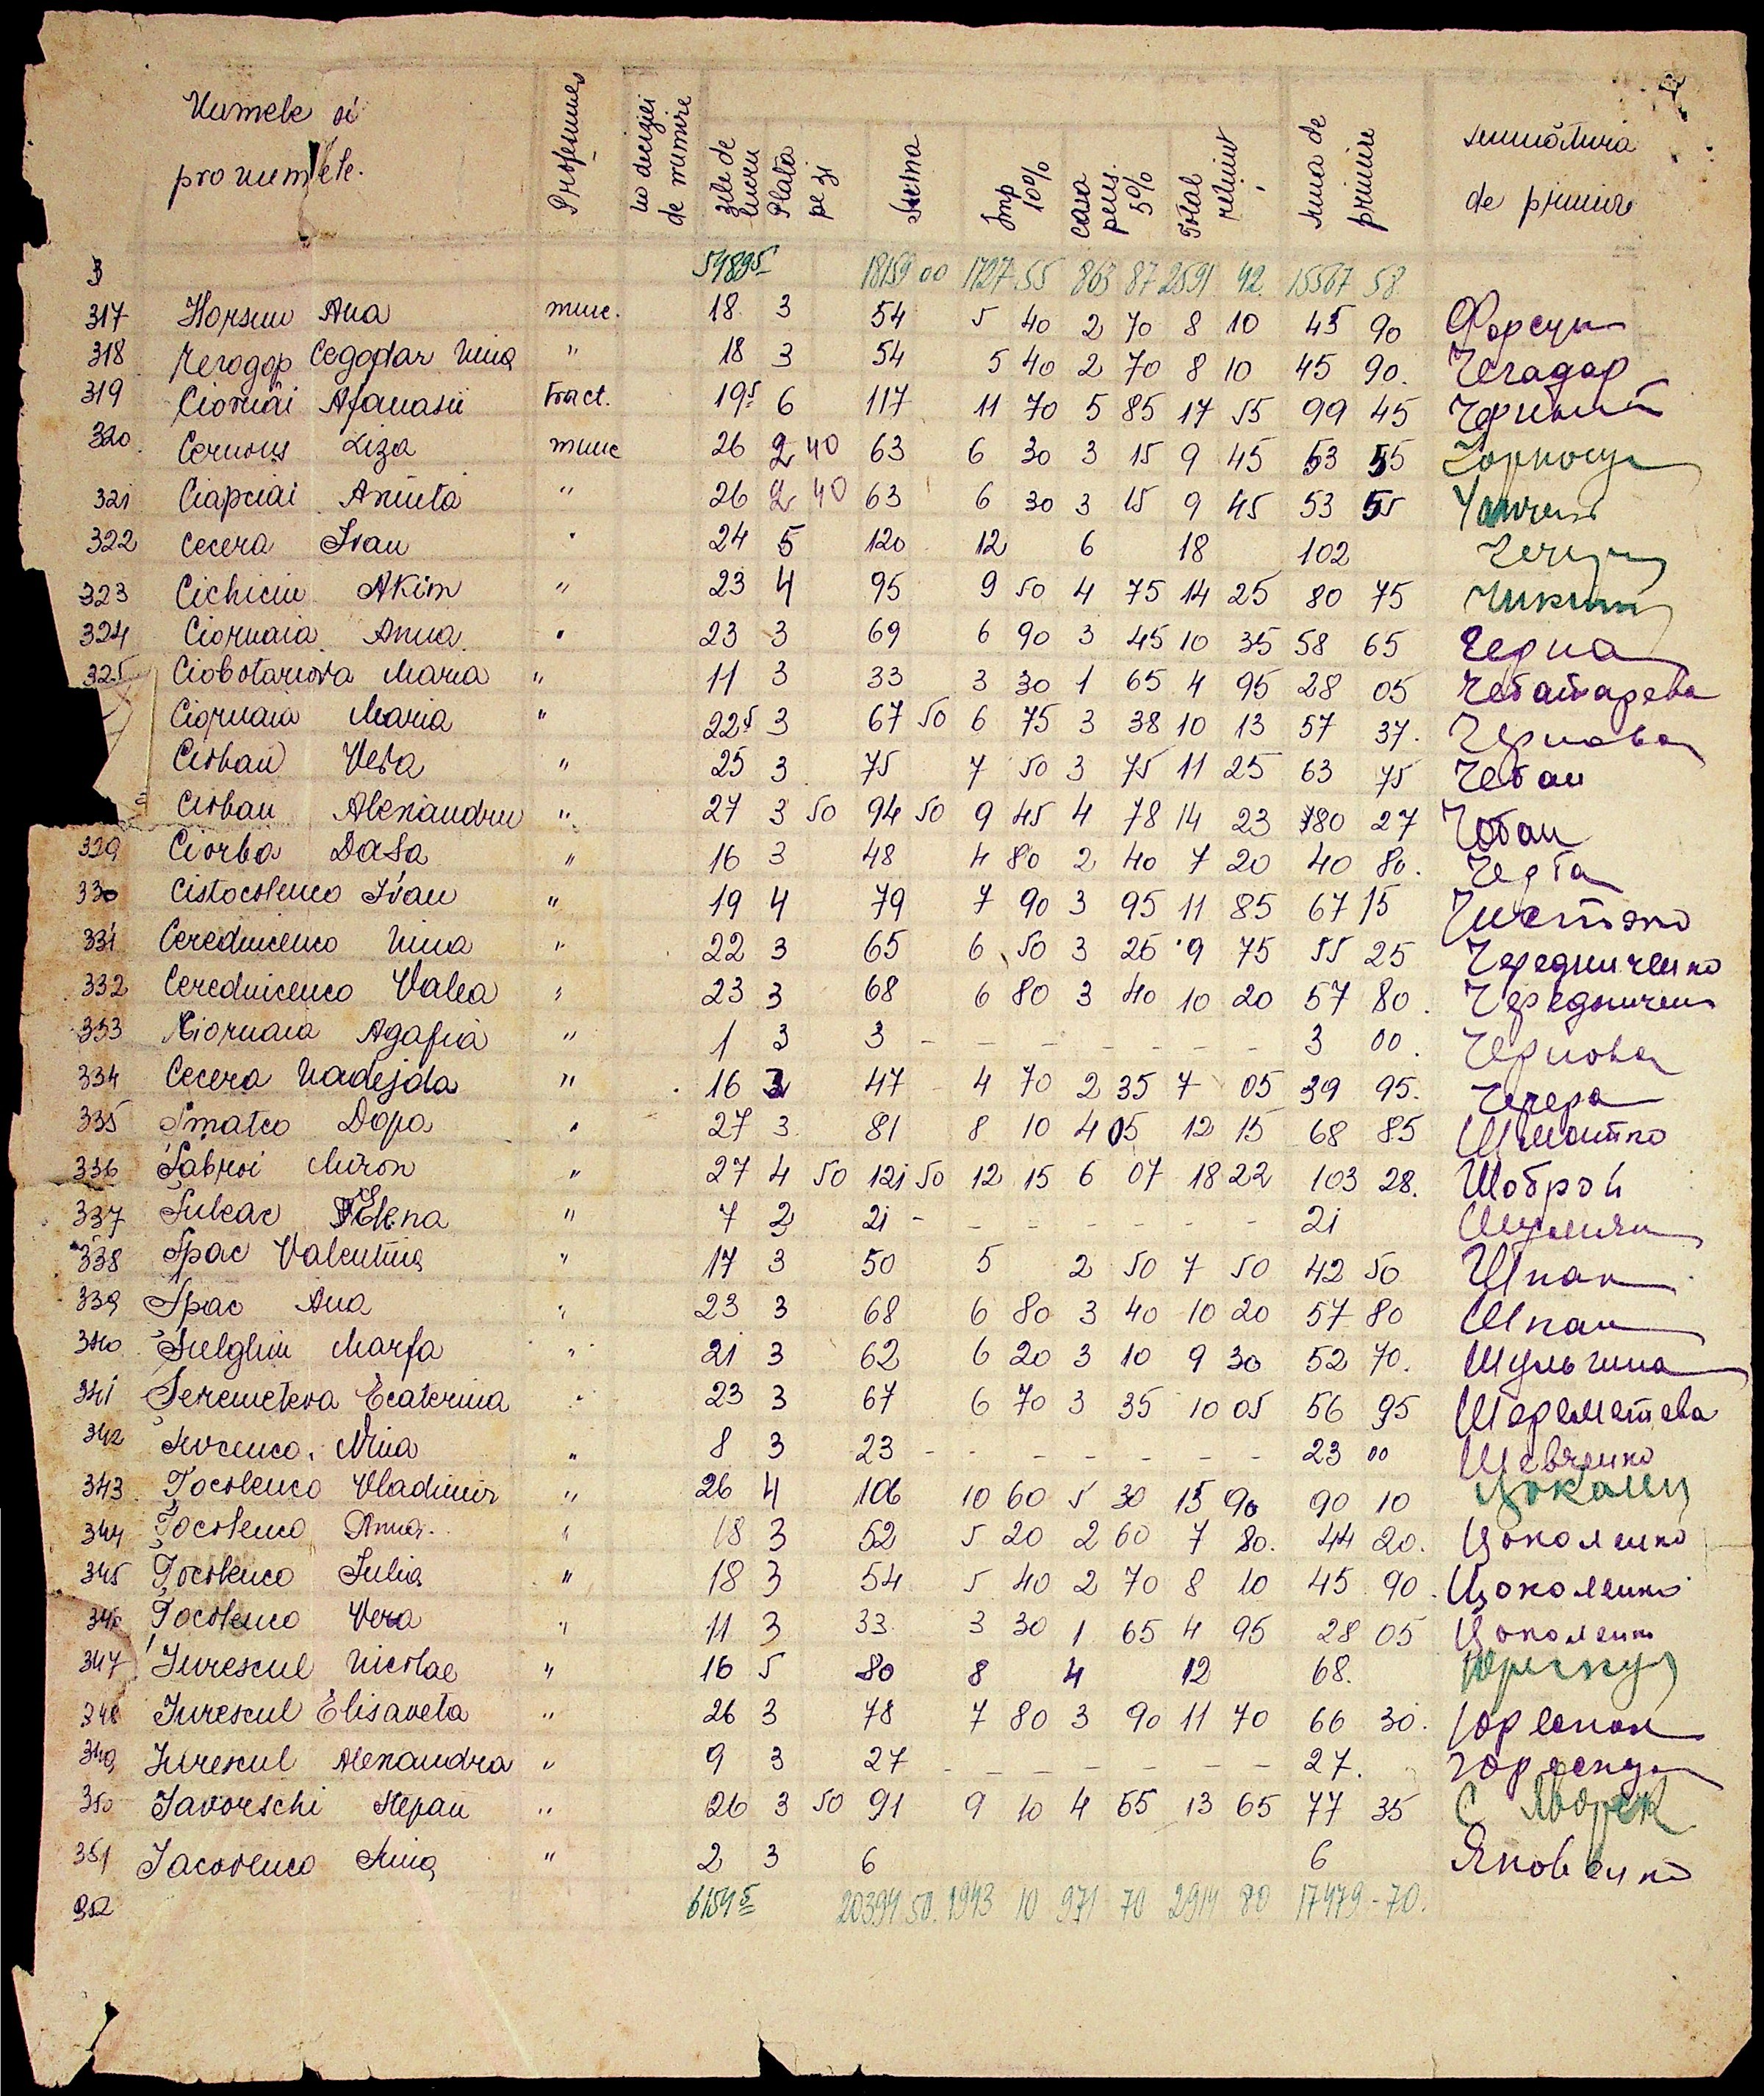 Numele si pronumele. Profesiunea No deciziei de numire zile de lucru Plata pe zi Suma Imp 10% Casa pens. 5% Total reținut Suma de primire semnătura de primire
5489⁵ 18159 00 1727 55 863 87 2591 42 15567 58
317 Horsun Ana munc. 18 3 54 5 40 2 70 8 10 45 90 Форсун
318 Чегодар Cegodar Nina " 18 3 54 5 40 2 70 8 10 45 90. Чегадар
319 Ciornâi Afanasii tract. 19⁵ 6 117 11 70 5 85 17 55 99 45 Черный
320 Cernous Liza munc 26 2 40 63 6 30 3 15 9 45 53 55
321 Ciapciai Aniuta " 26 2 40 63 6 30 3 15 9 45 53 55
322 Cecera Ivan " 24 5 120 12 6 18 102
323 Cichicin Akim " 23 4 95 9 50 4 75 14 25 80 75 Чикин
324 Ciornaia Anna " 23 3 69 6 90 3 45 10 35 58 65 Черна
325 Ciobotariova Maria " 11 3 33 3 30 1 65 4 95 28 05 Чебатарева
Ciornaia Maria " 22⁵ 3 67 50 6 75 3 38 10 13 57 37. Чернова
Cioban Vera " 25 3 75 7 50 3 75 11 25 63 75 Чебан
Cioban Alexandru " 27 3 50 94 50 9 45 4 78 14 23 80 27 Чобан
329 Ciorba Dasa " 16 3 48 4 80 2 40 7 20 40 80.
330 Cistocolenco Ivan " 19 4 79 7 90 3 95 11 85 67 15
331 Cerednicenco Nina " 22 3 65 6 50 3 25 9 75 55 25 Чередниченко
332 Cerednicenco Valea " 23 3 68 6 80 3 40 10 20 57 80. Чередничен
333 Ciornaia Agafia " 1 3 3 - - - - - - - 3 00. Чернова
334 Cecera Nadejda " 16 3 47 4 70 2 35 7 05 39 95. Чечера
335 Șmatco Dopa " 27 3 81 8 10 4 05 12 15 68 85 Шматко
336 Șabroi Miron " 27 4 50 121 50 12 15 6 07 18 22 103 28. Шоброй
337 Șuleac Elena " 7 2 21 - - - - - - - 21
338 Șpac Valentina " 17 3 50 5 2 50 7 50 42 50 Шпак
339 Șpac Ana " 23 3 68 6 80 3 40 10 20 57 80 Шпак
340 Șulghin Marfa " 21 3 62 6 20 3 10 9 30 52 70. Шульгина
341 Șeremeteva Ecaterina " 23 3 67 6 70 3 35 10 05 56 95 Шереметева
342 Șevcenco Nina " 8 3 23 - - - - - - - 23 00 Шевченко
343 Țocolenco Vladimir " 26 4 106 10 60 5 30 15 90 90 10
344 Țocolenco Anna " 18 3 52 5 20 2 60 7 80. 44 20. Цоколенко
345 Țocolenco Iulia " 18 3 54 5 40 2 70 8 10 45 90. Цоколенко
346 Țocolenco Vera " 11 3 33 3 30 1 65 4 95 28 05 Цоколенко
347 Iurescul Nicolae " 16 5 80 8 4 12 68.
348 Iurescul Elisaveta " 26 3 78 7 80 3 90 11 70 66 30.
349 Iurescul Alexandra " 9 3 27 - - - - - - - 27.
350 Iavorschi Stepan " 26 3 50 91 9 10 4 55 13 65 77 35
351 Iacovenco Nina " 2 3 6 6 Яковенко
352 6154⁵ 20394 50. 1943 10 971 70 2914 80 17479-70.